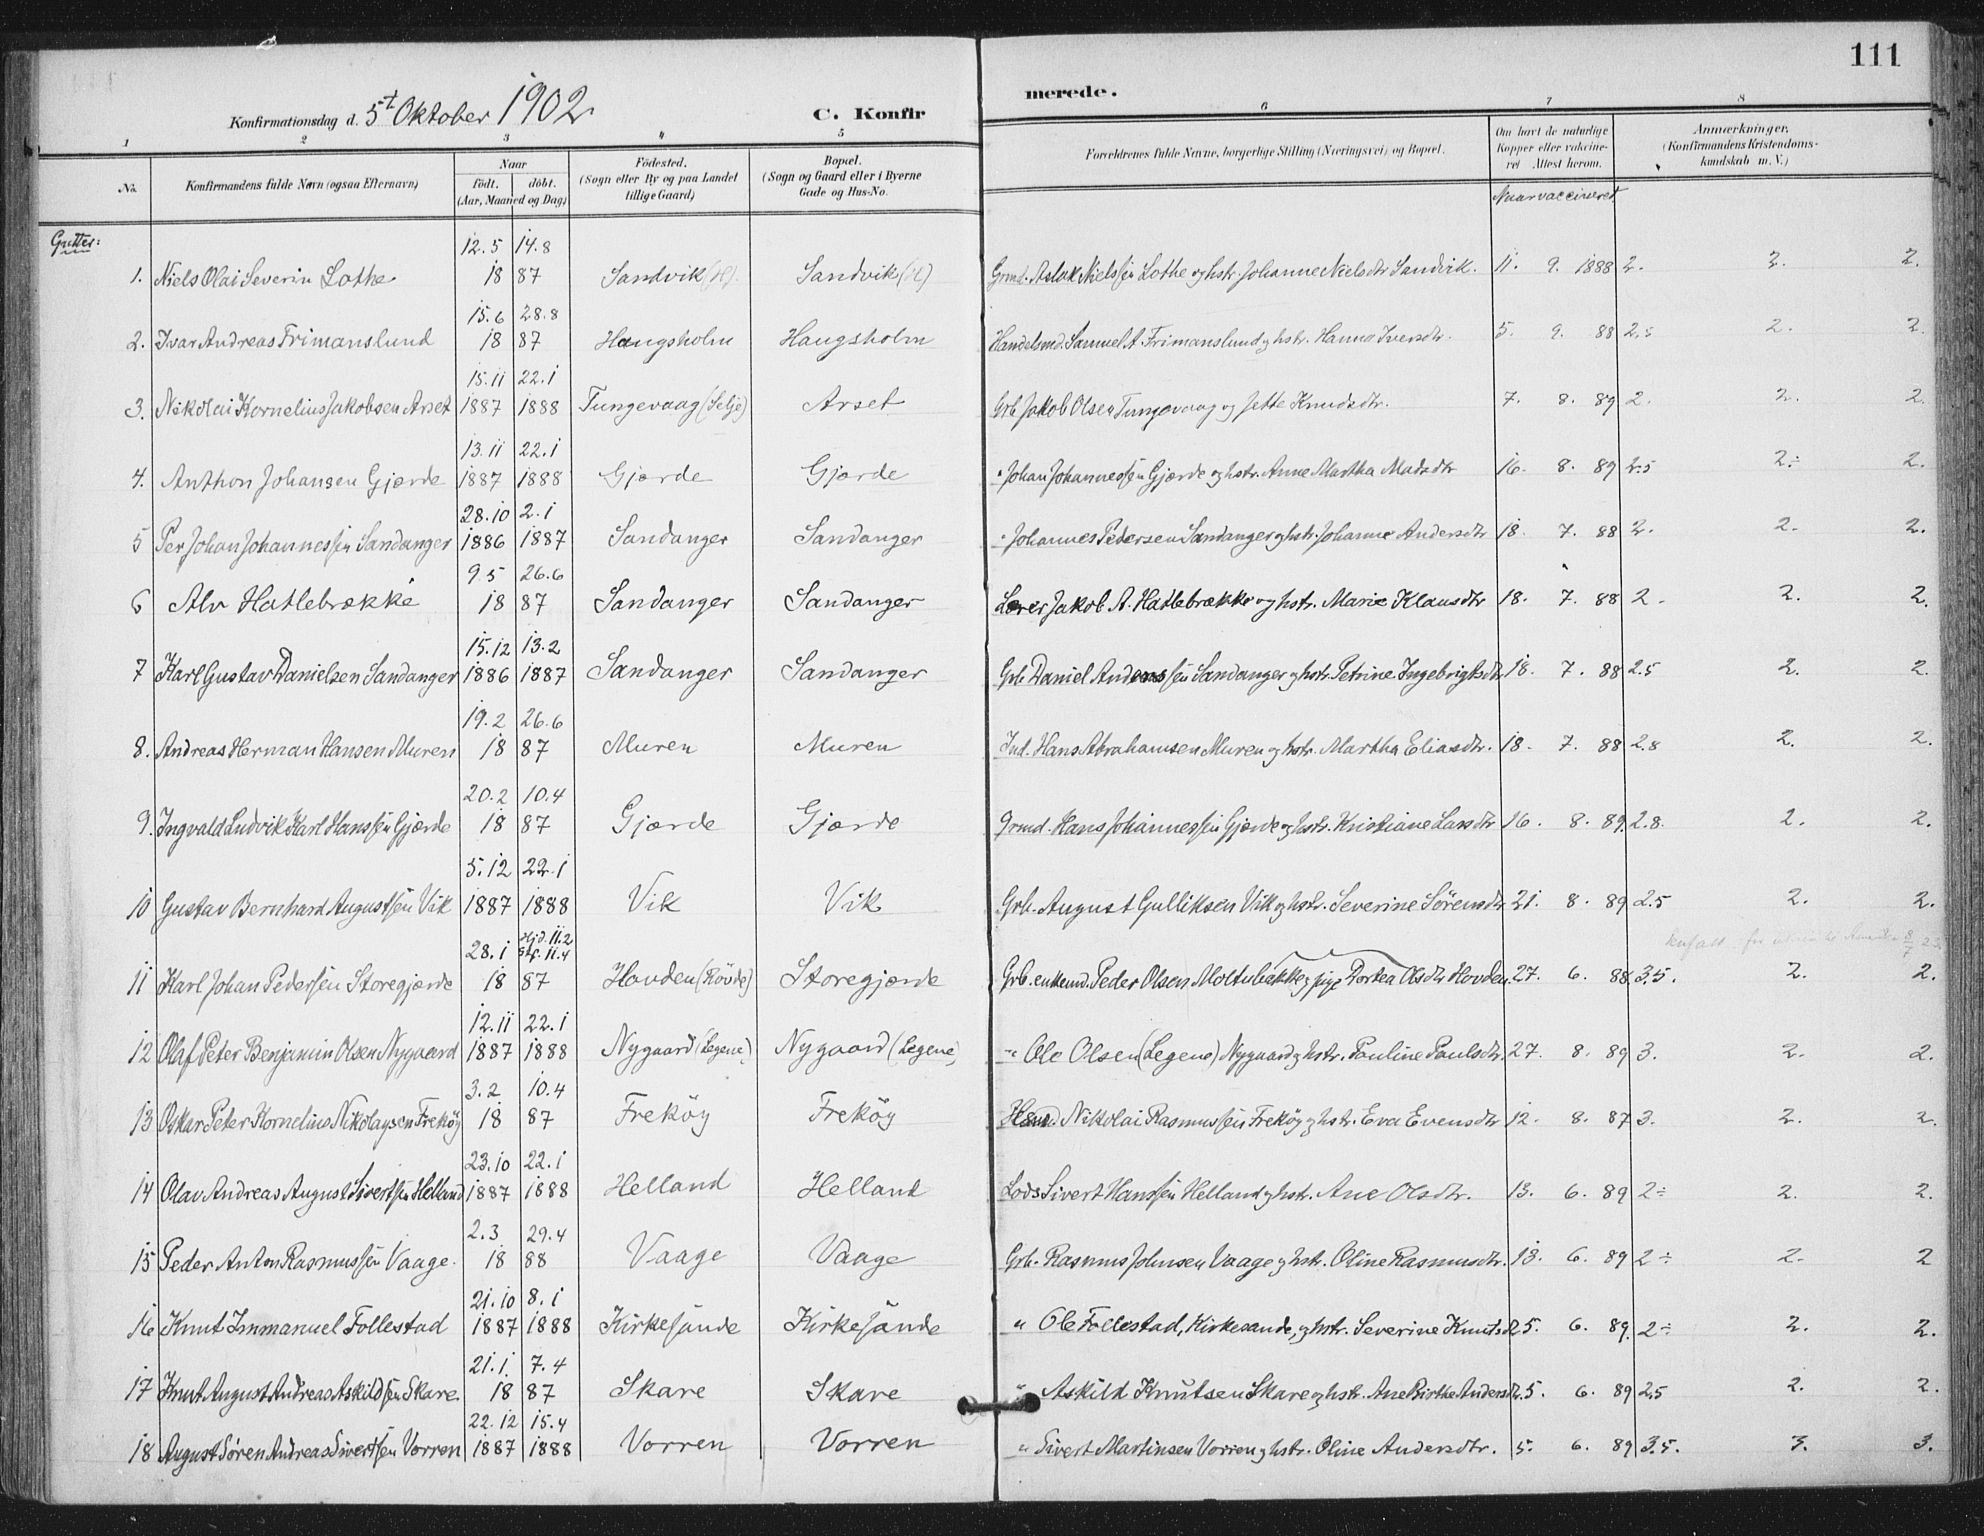 111
Konfirmationsdag d. 5t Oktober 1902
C. Konfirmerede.
1 2 3 4 5 6 7 8
No. Konfirmandens fulde Navn (ogsaa Efternavn) Naar födt. döbt. (Aar, Maaned og Dag) Födested. (Sogn eller By og paa Landet tillige Gaard) Bopæl. (Sogn og Gaard eller i Byerne Gade og Hus-No. Forældrenes fulde Navne, borgerlige Stilling (Næringsvei) og Bopæl. Om havt de naturlige Kopper eller vakcineret Attest herom. Anmærkninger. (Konfirmandens Kristendomskundskab m. V.)
Naar vaccineret
Gutter:
12.5 14.8
1. Niels Olai Severin Lothe 18 87 Sandvik (H) Sandvik (H) Grmd. Aslak Nielssen Lothe og hstr. Johanne Nielsdtr Sandvik. 11. 9. 1888 2. 2. 2.
15.6 28.8
2. Ivar Andreas Frimanslund 18 87 Haugsholm Haugsholm Handelsmd. Samuel A. Frimanslund og hstr. Hanna Iversdtr. 5. 9. 88 2.5 2. 2.
15.11 22.1
3. Nikolai Kornelius Jakobsen Arset 1887 1888 Tungevaag (Selje) Arset Grb. Jakob Olsen Tungevaag og Jette Knudsdtr. 7. 8. 89 2. 2. 2.
13.11 22.1
4. Anthon Johansen Gjærde 1887 1888 Gjærde Gjærde " Johan Johannessen Gjærde og hstr. Anne Martha Madsdtr 16. 8. 89 2.5 2.÷ 2.
28.10 2.1
5 Per Johan Johannessen Sandanger 1886 1887 Sandanger Sandanger " Johannes Pedersen Sandanger og hstr. Johanne Andersdtr 18. 7. 88 2. 2. 2.
9.5 26.6
6 Alv Hatlebrække 18 87 Sandanger Sandanger Lærer Jakob A. Hatlebrække og hstr. Marie Klausdtr 18. 7. 88 2. 2. 2.
15.12 13.2
7 Karl Gustav Danielsen Sandanger 1886 1887 Sandanger Sandanger Grb. Daniel Anderssen Sandanger og hstr. Petrine Ingebrigtsdtr 18. 7. 88 2.5 2. 2.
19.2 26.6
8. Andreas Herman Hansen Muren 18 87 Muren Muren Ind. Hans Abrahamsen Muren og hstr. Martha Eliasdtr. 18. 7. 88 2.8 2. 2.
20.2 10.4
9. Ingvald Ludvik Karl Hanssen Gjærde 18 87 Gjærde Gjærde Grmd. Hans Johannessen Gjærde og hstr. Kristiane Larsdtr 16. 8. 89. 2.8. 2. 2.
5.12 22.1
10 Gustav Bernhard Augustsen Vik 1887 1888 Vik Vik Grb. August Gulliksen Vik og hstr. Severine Sörensdtr 21. 8. 89 2.5 2. 2.
28.1 Hjd. 11.2 Stf. 11.4
11 Karl Johan Pederssen Storegjærde 18 87 Hovden (Rövde) Storegjærde Grb. enkemd. Peder Olsen Moltubakke og pige Dortea Olsdtr Hovden. 27. 6. 88. 3.5. 2. 2.
12.11 22.1
12 Olaf Peter Benjamin Olsen Nygaard 1887 1888 Nygaard (Legene) Nygaard (Legene) " Ole Olsen (Legene) Nygaard og hstr. Pauline Paulsdtr. 27. 8. 89 3. 2. 2.
3.2 10.4
13 Oskar Peter Kornelius Nikolaysen Freköy 18 87 Freköy Freköy Nikolai Rasmussen Freköy og hstr. Eva Evensdtr 12. 8. 87 3. 2. 2.
23.10 22.1
14 Olav Andreas August Sivertsen Helland 1887 1888 Helland Helland Lods Sivert Hanssen Helland og hstr. Ane Olsdtr. 13. 6. 89 2÷ 2. 2.
2.3 29.4
15 Peder Anton Rasmussen Vaage. 18 88 Vaage Vaage Grb. Rasmus Johnsen Vaage og hstr. Oline Rasmusdtr. 13. 6. 89 2÷ 2. 2
21.10 8.1
16 Knut Immanuel Follestad 1887 1888 Kirkesande Kirkesande " Ole Follestad, Kirkesande, og hstr. Severine Knutsd. 25. 6. 89. 2÷ 2. 2.
21.1. 7.4
17 Knut August Andreas Askildsen Skare 18 87 Skare Skare " Askild Knutsen Skare og hstr. Ane Birthe Andersd. 25. 6. 89 2.5 2. 2.
22.12 15.4
18 August Sören Andreas Sivertsen Vorren 1887 1888 Vorren Vorren " Sivert Martinsen Vorren og hstr. Oline Andersdtr. 5. 6. 89 3.5. 3. 3.